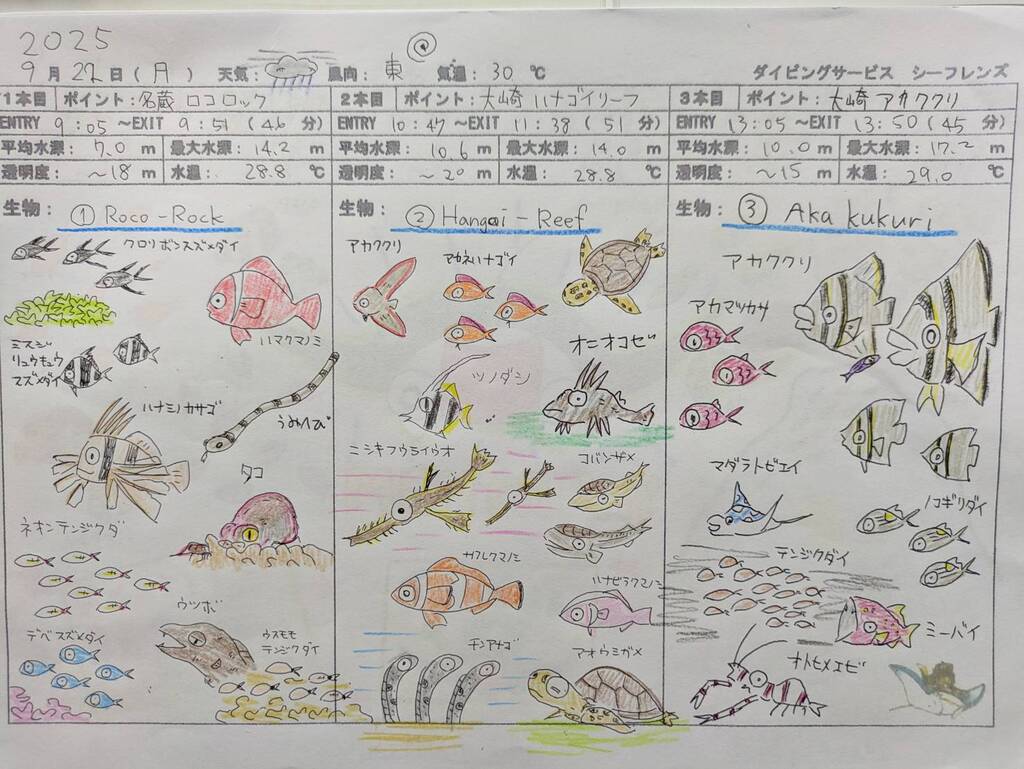 2025
9月22日(月) 天気: 風向: 東 気温: 30 ℃ ダイビングサービス シーフレンズ
1本目 ポイント: 名蔵 ロコロック
ENTRY 9:05 ~EXIT 9:51 (46 分)
平均水深: 7.0 m 最大水深: 14.2 m
透明度: ~18 m 水温: 28.8 ℃
生物: ① Roco-Rock
クロリボンスズメダイ
ハマクマノミ
ミスジ
リュウキュウ
スズメダイ
うみヘビ
ハナミノカサゴ
タコ
ネオンテンジクダ
ウツボ
デバスズメダイ
ウスモモ
テンジクダイ
2本目 ポイント: 大崎 ハナゴイリーフ
ENTRY 10:47 ~EXIT 11:38 (51 分)
平均水深: 10.6 m 最大水深: 14.0 m
透明度: ~20 m 水温: 28.8 ℃
生物: ② Hangoi-Reef
アカククリ
アカネハナゴイ
オニオコゼ
ツノダシ
ニシキフウライウオ
コバンザメ
カクレクマノミ
ハナビラクマノミ
チンアナゴ
アオウミガメ
3本目 ポイント: 大崎 アカククリ
ENTRY 13:05 ~EXIT 13:50 (45 分)
平均水深: 10.0 m 最大水深: 17.2 m
透明度: ~15 m 水温: 29.0 ℃
生物: ③ Aka kukuri
アカククリ
アカマツカサ
マダラトビエイ
ノコギリダイ
テンジクダイ
ミーバイ
オトヒメエビ